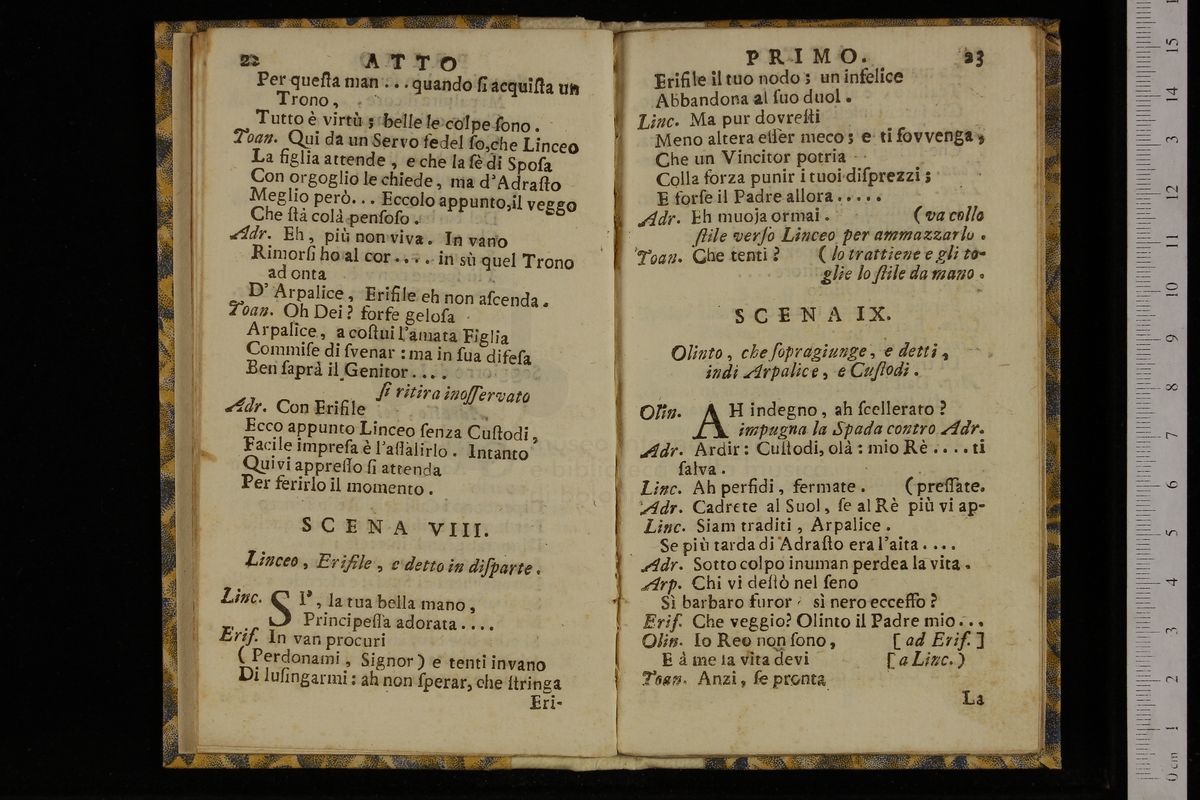 22 ATTO
Per queſta man . . . quando ſi acquiſta un
Trono,
Tutto è virtù ; belle le colpe ſono .
Toan. Qui da un Servo fedel ſo,che Linceo
La figlia attende , e che la fè di Spoſa
Con orgoglio le chiede, ma d'Adraſto
Meglio però... Eccolo appunto,il veggo
Che ſtà colà penſoſo .
Adr. Eh, più non viva. In vano
Rimorſi ho al cor.... in sù quel Trono
ad onta
D' Arpalice, Erifile eh non aſcenda.
Toan. Oh Dei? forſe geloſa
Arpalice, a coſtui l'amata Figlia
Commiſe di ſvenar : ma in ſua difeſa
Ben ſaprà il Genitor....
ſi ritira inoſſervato
Adr. Con Erifile
Ecco appunto Linceo ſenza Cuſtodi,
Facile impreſa è l'aſſàlirlo. Intanto
Quivi appreſſo ſi attenda
Per ferirlo il momento .
SCENA VIII.
Linceo, Erifile, e detto in diſparte.
Linc. SI', la tua bella mano,
Principeſſa adorata....
Eriſ. In van procuri
( Perdonami, Signor ) e tenti invano
Di luſingarmi : ah non ſperar, che ſtringa
Eri-
PRIMO. 23
Erifile il tuo nodo ; un infelice
Abbandona al ſuo duol.
Linc. Ma pur dovreſti
Meno altera eſſer meco; e ti ſovvenga,
Che un Vincitor potria
Colla forza punir i tuoi diſprezzi ;
E forſe il Padre allora.....
Adr. Eh muoja ormai. ( va collo
ſtile verſo Linceo per ammazzarlo .
Toan. Che tenti ? ( lo trattiene e gli to-
glie lo ſtile da mano .
SCENA IX.
Olinto, che ſopragiunge, e detti,
indi Arpalice, e Cuſtodi.
Olin. AH indegno, ah ſcellerato ?
impugna la Spada contro Adr.
Adr. Ardir: Cuſtodi, olà : mio Rè .... ti
ſalva.
Linc. Ah perfidi, fermate. (preſſate.
Adr. Cadrete al Suol, ſe al Rè più vi ap-
Linc. Siam traditi, Arpalice.
Se più tarda di Adraſto era l'aita....
Adr. Sotto colpo inuman perdea la vita.
Arp. Chi vi deſtò nel ſeno
Sì barbaro furor sì nero ecceſſo ?
Eriſ. Che veggio? Olinto il Padre mio...
Olin. Io Reo non ſono, [ ad Eriſ. ]
E à me la vita devi [ a Linc. )
Toan. Anzi, ſe pronta
La